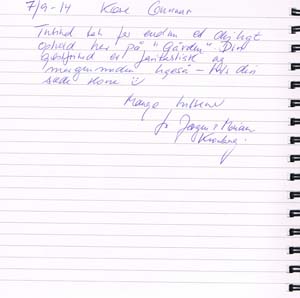 7/9-14 Kære Connar
Tusind tak for endnu et dejligt
ophold her på "Gården". Din
gæstfrihed er fantastisk og
morgenmaden ligeså - Hils din
søde kone
Mange hilsner
fra Jørgen & Marian